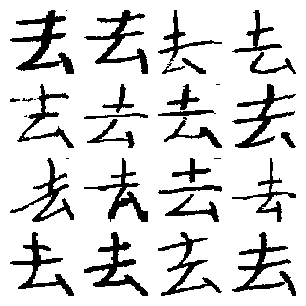 去去去去
去去去去
去去去去
去去去去